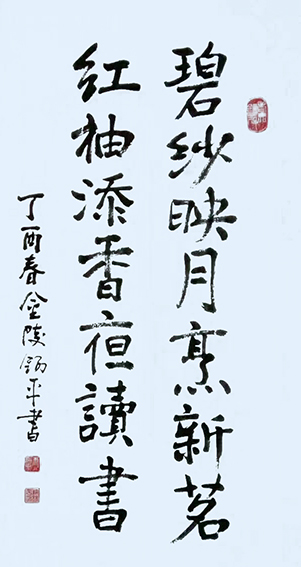 碧紗映月烹新茗
紅袖添香夜讀書
丁酉春金陵炳平書